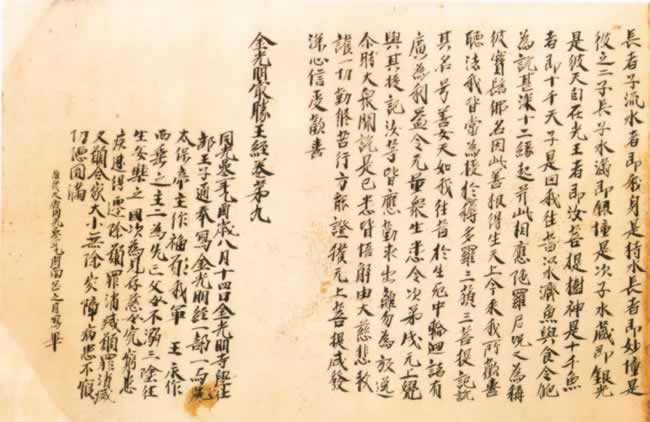 長者子流水者即我身是持水長者即妙幢是
彼之二子長子水滿即銀幢是次子水藏即銀光
是彼天自在光王者即汝菩提樹神是十千魚
者即十千天子是因我往昔以水濟魚與食令飽
為說甚深十二緣起并此相應陁羅尼呪又為稱
彼寶髻佛名因此善根得生天上今來我所歡喜
聽法我皆當為授於耨多羅三藐三菩提記說
其名号善女天如我往昔於生死中輪迴諸有
廣為利益令无量衆生悉令次第成无上覺
與其授記汝等皆應勤求出離勿為放逸
尒時大衆聞說是已悉皆悟解由大慈悲救
護一切勤修苦行方能證獲无上菩提咸發
深心信受歡喜
金光明最勝王經卷第九
同光叁年乙酉歲八月十四日金光明寺學仕
郎王子通奉寫金光明經一部一與先
太保帝主作福我軍王永作
西垂之主二為先亡父母不溺三塗往
生安樂之國次為見存慈父患
疾速得除願罪消滅願罪消滅
又願合家大小無除災障病患不復
功德圓滿
同光叁年之月寫畢